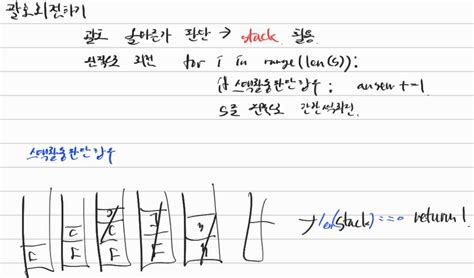 괄호회전하기
괄호 올바른가 판단 → stack 활용
왼쪽으로 회전 for i in range(len(s)):
if 스택활용판단함수 : answer +=1
s를 왼쪽으로 한칸씩회전.
스택활용판단함수
[ [ [ [
→ len(stack)==0 return 1